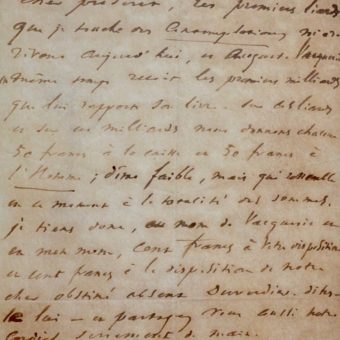 cher proscrit, les premiers liards
que je touche des Contemplations m'ar-
rivent aujourd'hui, et Auguste Vacquerie
en même temps reçoit les premiers milliards
que lui rapporte son livre. Sur ces liards
et sur ces milliards nous donnons chacun
50 francs à la caisse et 50 francs à
l'Homme; dîme faible, mais qui ressemble
en ce moment à la totalité des sommes.
je tiens donc, au nom de Vacquerie et
en mon nom, cent francs à votre disposition
et cent francs à la disposition de notre
cher obstiné absent Duverdier. dites-
le lui — et partagez vous aussi notre
cordial serrement de main.